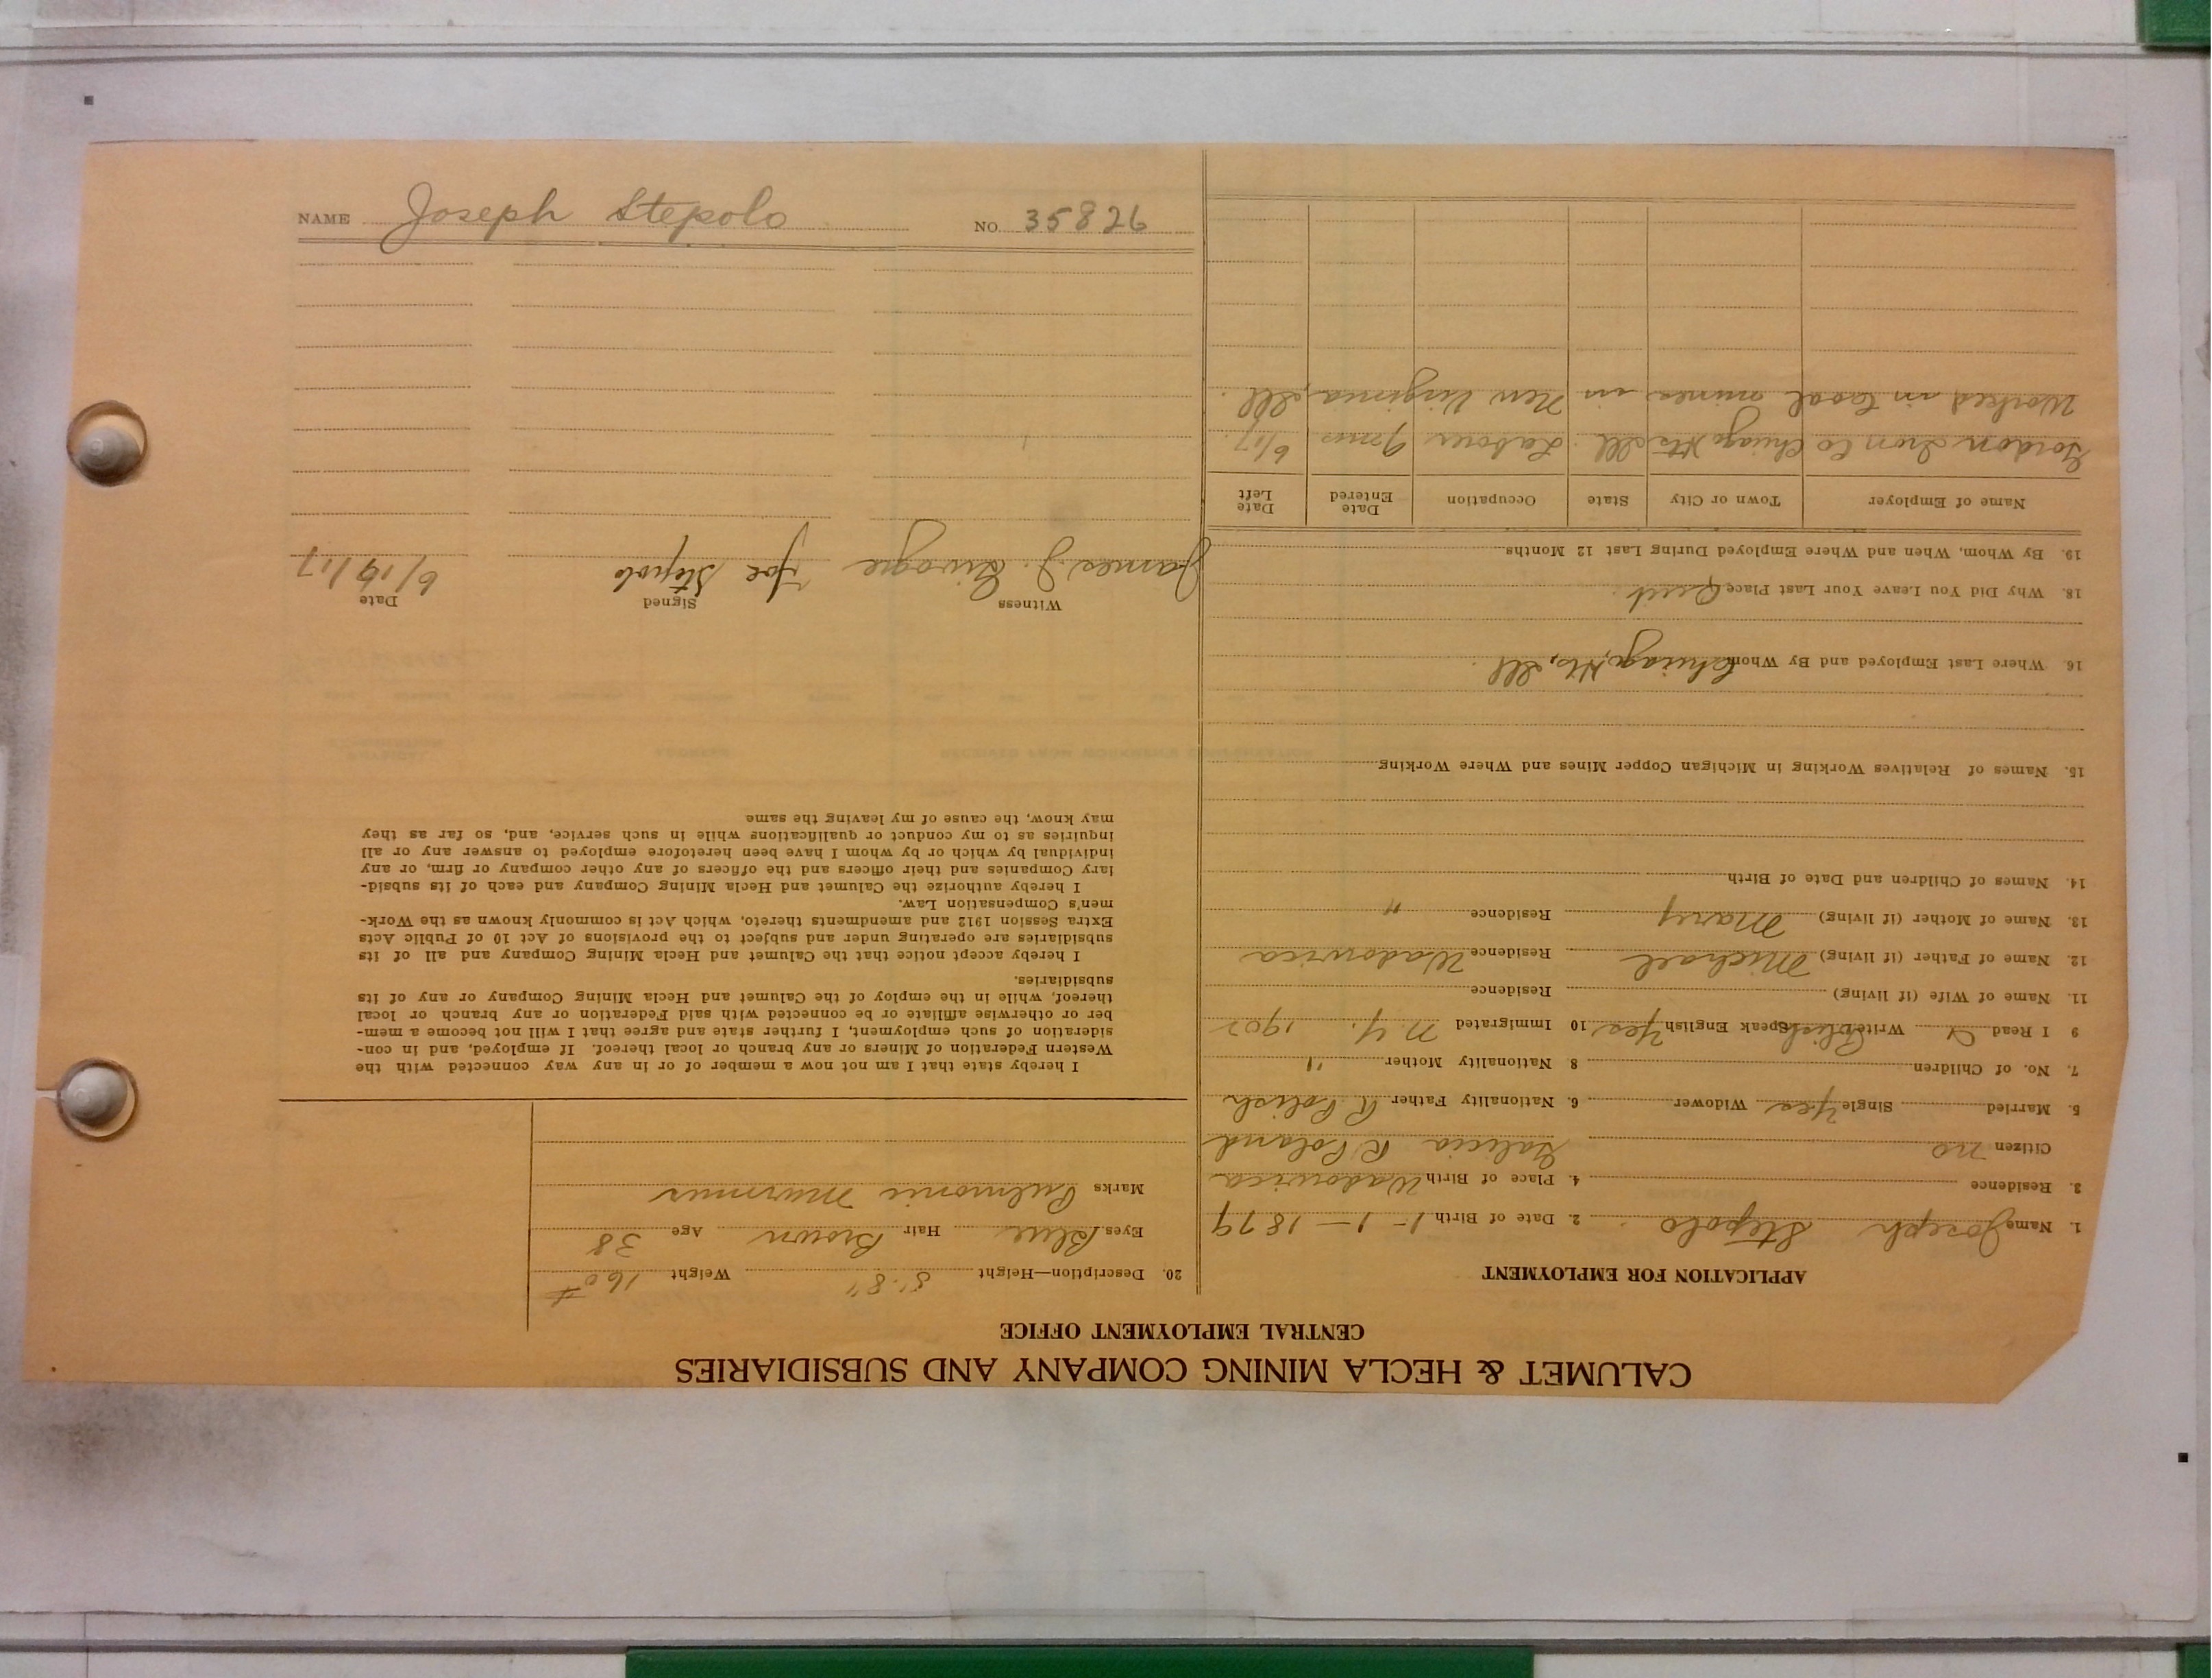 CALUMET & HECLA MINING COMPANY AND SUBSIDIARIES
CENTRAL EMPLOYMENT OFFICE
APPLICATION FOR EMPLOYMENT
1. Name Joseph Stepolo 2. Date of Birth 1-1-1879
3. Residence 4. Place of Birth Wadowica
Citizen no Galicia R Poland
5. Married Single Yes Widower 6. Nationality Father R Polish
7. No. of Children 8 Nationality Mother "
9 I Read & Write Polish Speak English Yes 10 Immigrated N.Y. 1902
11. Name of Wife (if living) Residence
12. Name of Father (if living) Michael Residence Wadowica
13. Name of Mother (if living) Mary Residence "
14. Names of Children and Date of Birth
15. Names of Relatives Working in Michigan Copper Mines and Where Working
16. Where Last Employed and By Whom Chicago, Hts, Ill.
18. Why Did You Leave Your Last Place Quit.
19. By Whom, When and Where Employed During Last 12 Months
Name of Employer Town or City State Occupation Date Entered Date Left
Gordon Iron Co Chicago Hts Ill. Laborer 9 mos 6/17.
Worked in Coal mines in New Virginia, Ill.
20. Description—Height 5'8" Weight 160#
Eyes Blue Hair Brown Age 38
Marks Pulmonic Murmur
I hereby state that I am not now a member of or in any way connected with the
Western Federation of Miners or any branch or local thereof. If employed, and in con-
sideration of such employment, I further state and agree that I will not become a mem-
ber or otherwise affiliate or be connected with said Federation or any branch or local
thereof, while in the employ of the Calumet and Hecla Mining Company or any of its
subsidiaries.
I hereby accept notice that the Calumet and Hecla Mining Company and all of its
subsidiaries are operating under and subject to the provisions of Act 10 of Public Acts
Extra Session 1912 and amendments thereto, which Act is commonly known as the Work-
men's Compensation Law.
I hereby authorize the Calumet and Hecla Mining Company and each of its subsid-
iary Companies and their officers and the officers of any other company or firm, or any
individual by which or by whom I have been heretofore employed to answer any or all
inquiries as to my conduct or qualifications while in such service, and, so far as they
may know, the cause of my leaving the same
Witness Signed Date
James J. Joe Stepolo 6/19/17
NAME Joseph Stepolo NO. 35826